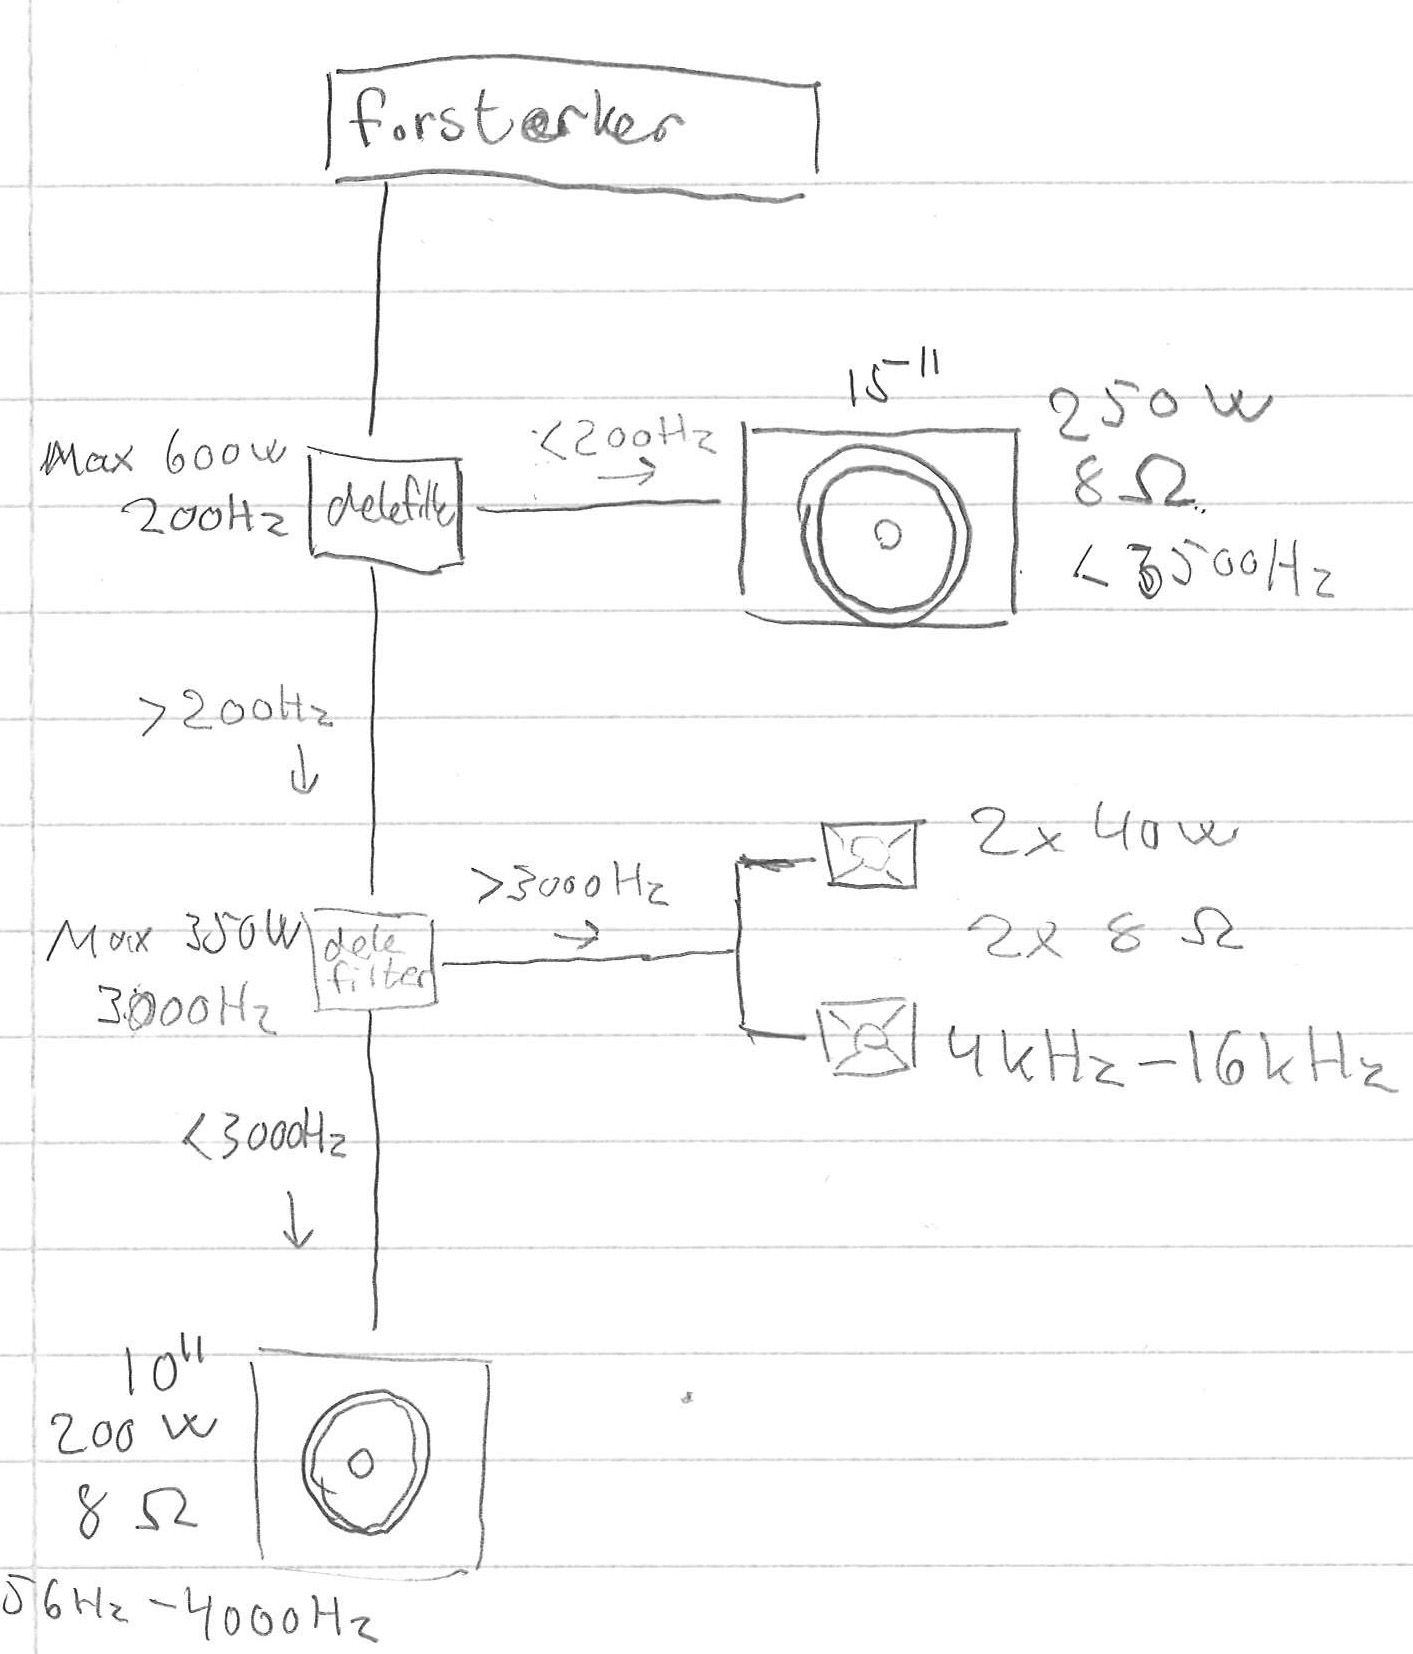 forstærker
15"
250W
8 Ω
<3500Hz
Max 600W
200Hz
delefilter
<200Hz
→
>200Hz
↓
2x 40W
2x 8 Ω
4kHz-16kHz
>3000Hz
→
Max 350W
3000Hz
dele
filter
<3000Hz
↓
10"
200W
8 Ω
56Hz-4000Hz